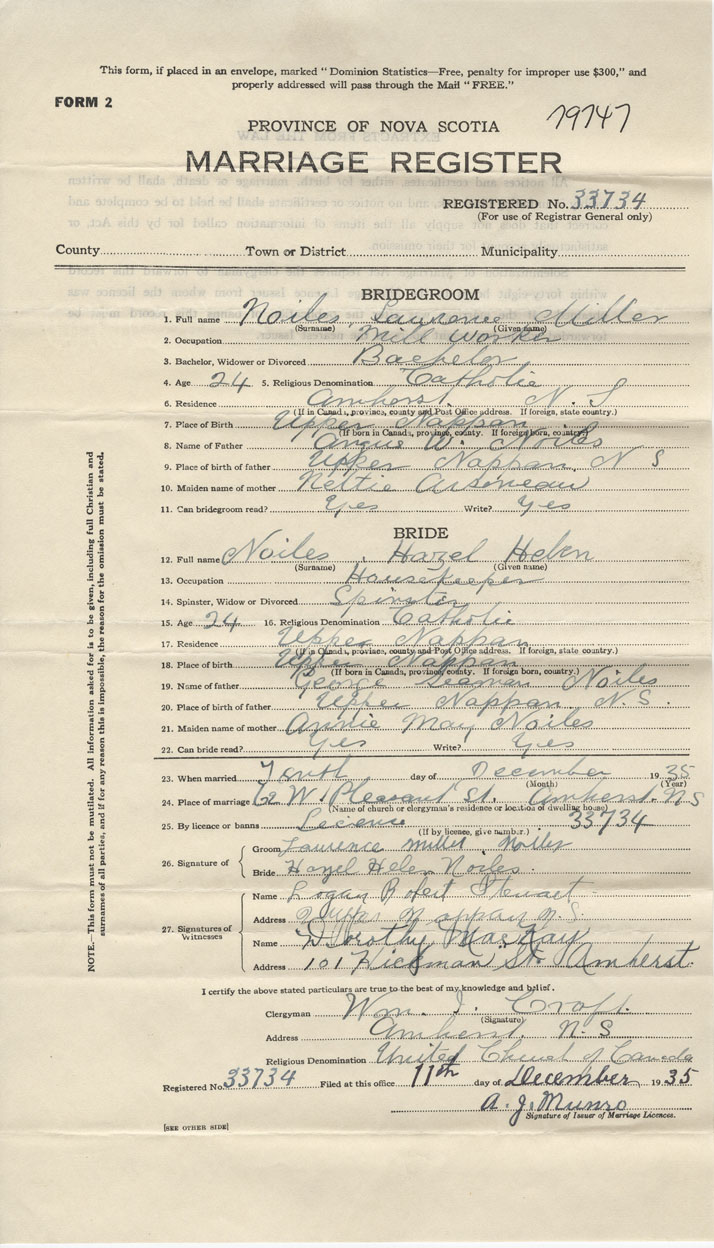 This form, if placed in an envelope, marked "Dominion Statistics—Free, penalty for improper use $300," and
properly addressed will pass through the Mail "FREE."
FORM 2
79747
PROVINCE OF NOVA SCOTIA
MARRIAGE REGISTER
REGISTERED No. 33734
(For use of Registrar General only)
County Town or District Municipality
BRIDEGROOM
1. Full name Noiles, Laurence Miller
(Surname) (Given name)
2. Occupation Mill Worker
3. Bachelor, Widower or Divorced Bachelor
4. Age 24 5. Religious Denomination Catholic
6. Residence Amherst N. S
(If in Canada, province, county and Post Office address. If foreign, state country.)
7. Place of Birth Upper Nappan
(If born in Canada, province, county. If foreign born, country)
8. Name of Father Angus W. Noiles
9. Place of birth of father Upper Nappan, N S
10. Maiden name of mother Nettie Arseneau
11. Can bridegroom read? Yes Write? Yes
BRIDE
12. Full name Noiles, Hazel Helen
(Surname) (Given name)
13. Occupation Housekeeper
14. Spinster, Widow or Divorced Spinster
15. Age 24 16. Religious Denomination Catholic
17. Residence Upper Nappan
(If in Canada, province, county and Post Office address. If foreign, state country.)
18. Place of birth Upper Nappan
(If born in Canada, province, county. If foreign born, country.)
19. Name of father George Seaman Noiles
20. Place of birth of father Upper Nappan, N. S.
21. Maiden name of mother Annie May Noiles
22. Can bride read? Yes Write? Yes
23. When married Tenth day of December 1935
(Month) (Year)
24. Place of marriage 62 W. Pleasant St. Amherst. N S
(Name of church or clergyman's residence or location of dwelling house)
25. By licence or banns Licence 33734
(If by licence, give number.)
26. Signature of
Groom Laurence Miller Noiles
Bride Hazel Helen Noiles
27. Signatures of Witnesses
Name Logan Robert Stewart
Address Nappan N. S.
Name Dorothy MacKay
Address 101 Hickman St. Amherst.
I certify the above stated particulars are true to the best of my knowledge and belief.
Clergyman Wm. I. Croft.
(Signature)
Address Amherst. N. S
Religious Denomination United Church of Canada
Registered No. 33734 Filed at this office 11th day of December 1935
A. J. Munro
Signature of Issuer of Marriage Licences.
[SEE OTHER SIDE]
NOTE.—This form must not be mutilated. All information asked for is to be given, including full Christian and
surnames of all parties, and if for any reason this is impossible, the reason for the omission must be stated.